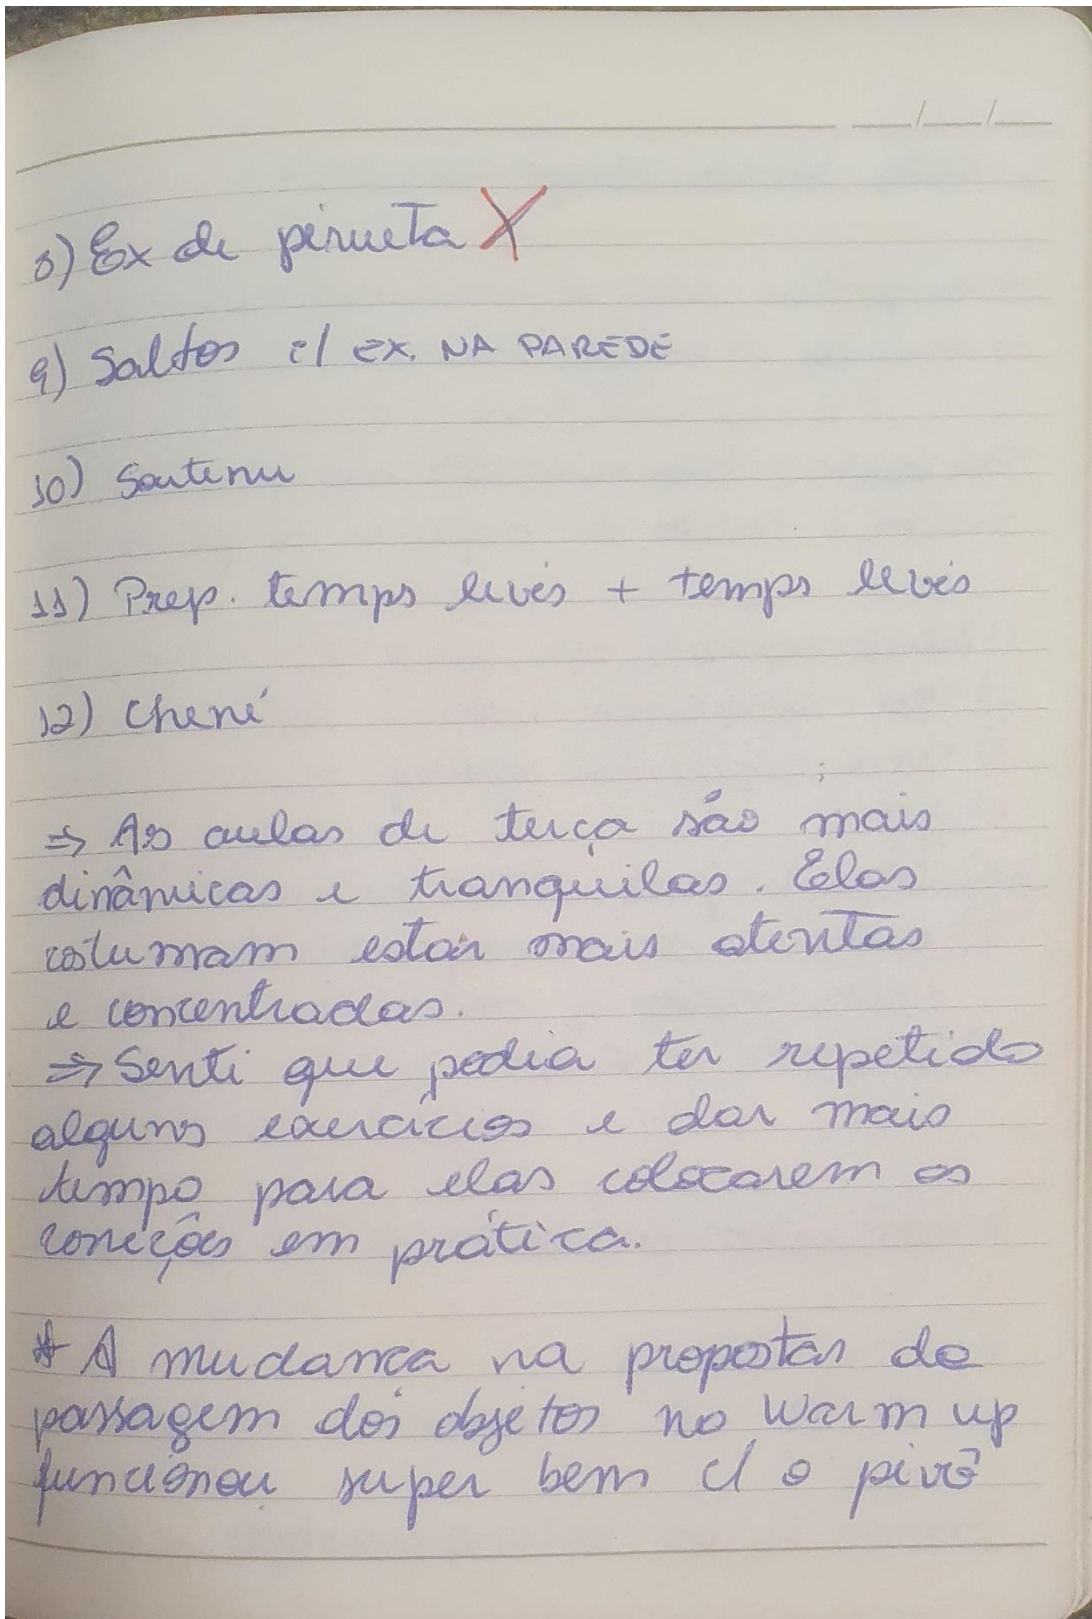 ___/___/___
8) Ex de pirueta X
9) Saltos c/ EX. NA PAREDE
10) Soutenu
11) Prep. temps levés + temps levés
12) Chené
⇒ As aulas de terça são mais
dinâmicas e tranquilas. Elas
costumam estar mais atentas
e concentradas.
⇒ Senti que podia ter repetido
alguns exercícios e dar mais
tempo para elas colocarem as
correções em prática.
* A mudança na propostas de
passagem dos objetos no warm up
funcionou super bem c/ o pivô